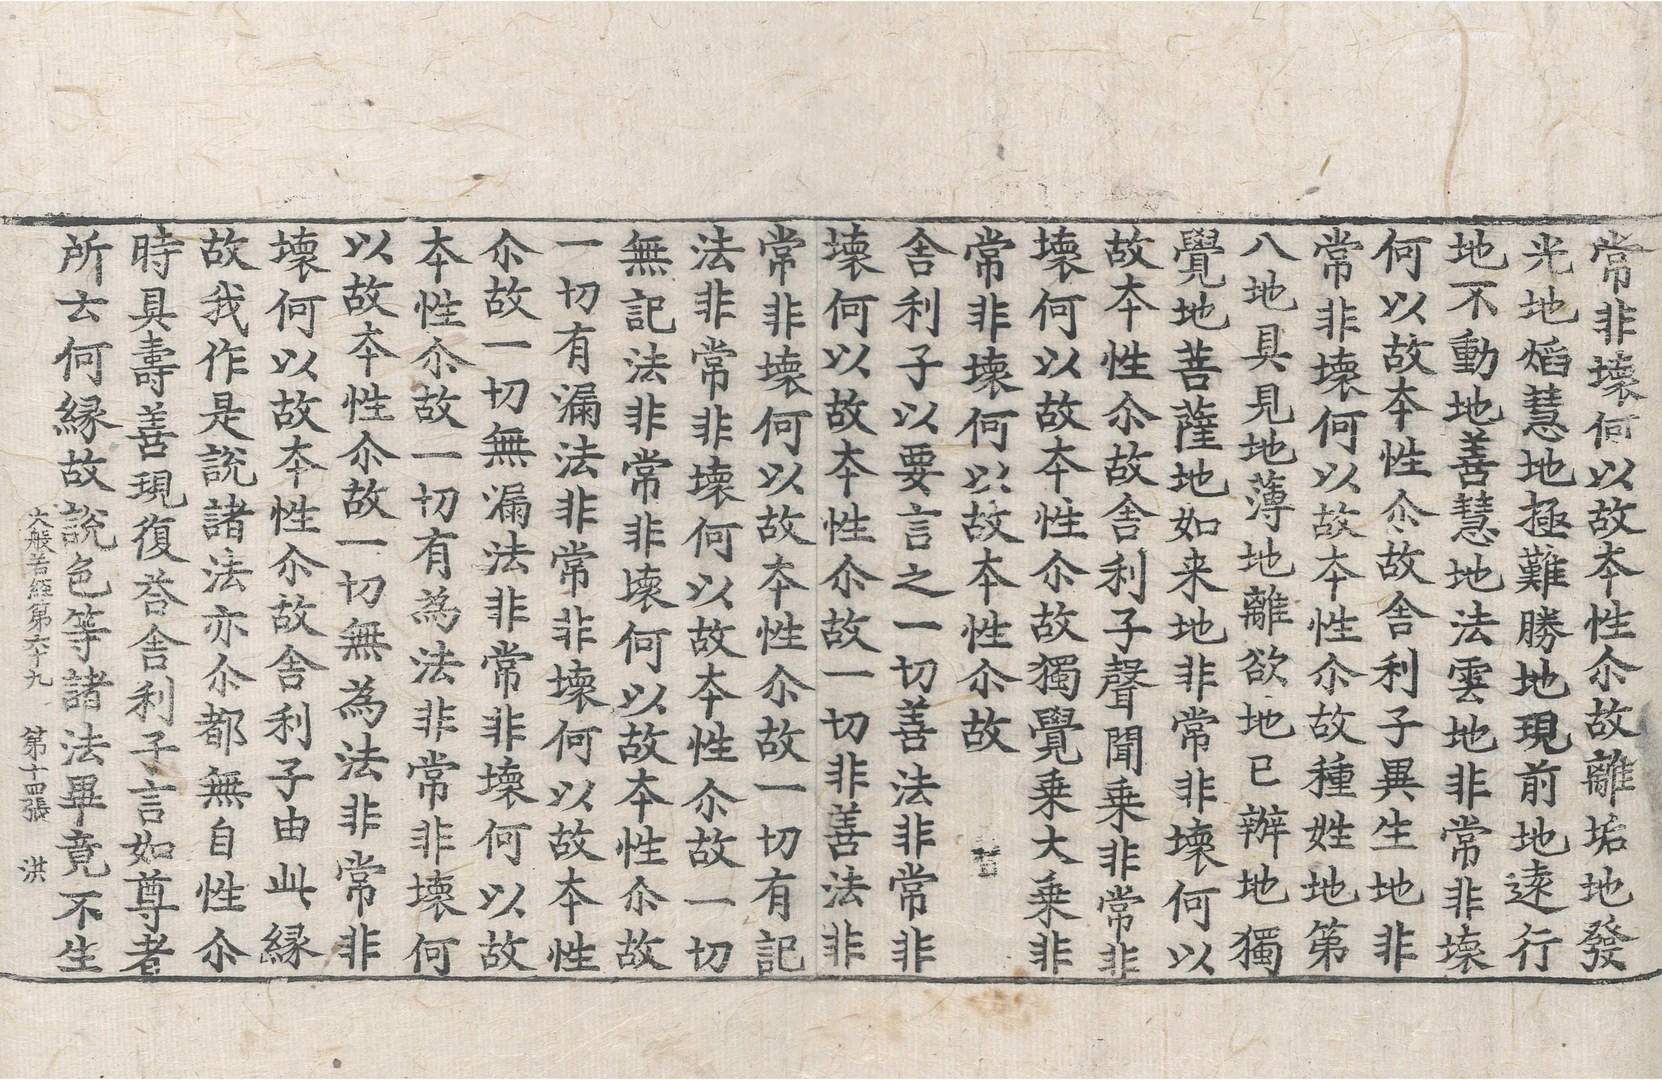 常非壞何以故夲性尒故離垢地發
光地焰慧地極難勝地現前地遠行
地不動地善慧地法雲地非常非壞
何以故夲性尒故舍利子異生地非
常非壞何以故夲性尒故種姓地第
八地具見地薄地離欲地已辦地獨
覺地菩薩地如来地非常非壞何以
故夲性尒故舍利子聲聞乗非常非
壞何以故夲性尒故獨覺乗大乗非
常非壞何以故夲性尒故
舍利子以要言之一切善法非常非
壞何以故夲性尒故一切非善法非
常非壞何以故夲性尒故一切有記
法非常非壞何以故夲性尒故一切
無記法非常非壞何以故夲性尒故
一切有漏法非常非壞何以故夲性
尒故一切無漏法非常非壞何以故
夲性尒故一切有為法非常非壞何
以故夲性尒故一切無為法非常非
壞何以故夲性尒故舍利子由此縁
故我作是說諸法亦尒都無自性尒
時具壽善現復荅舍利子言如尊者
所云何縁故說色等諸法畢竟不生
大般若經第六十九 第十四張 洪